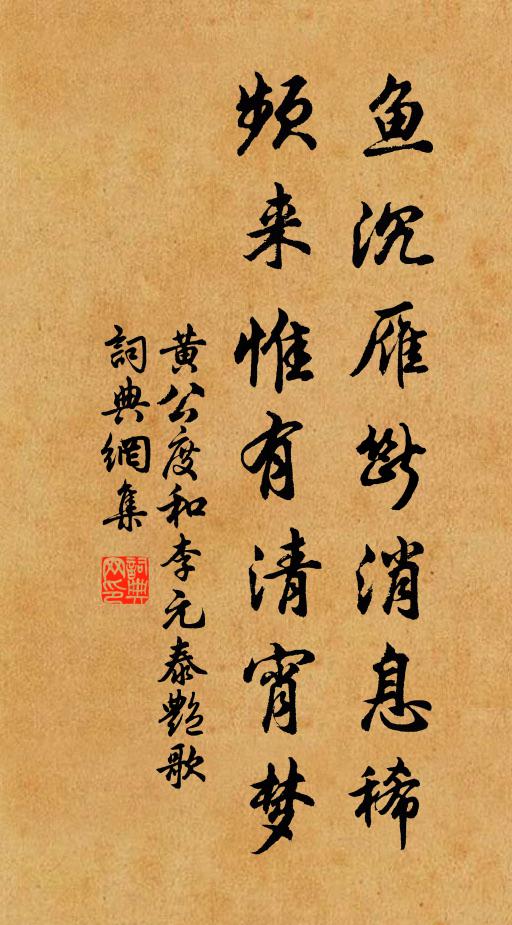 鱼沉雁断消息稀
频来惟有清宵梦
黄公度和李元泰艳歌
詞典網集
詞典网印